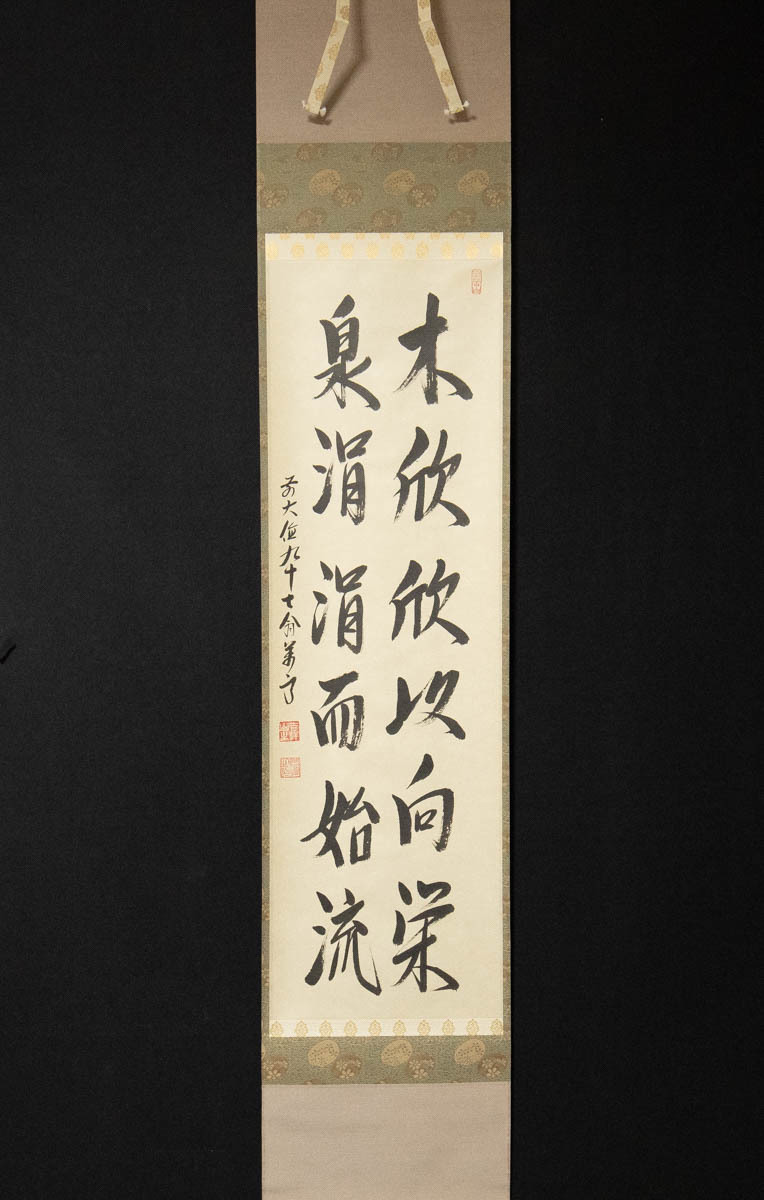 木欣欣以向栄
泉涓涓而始流
前大徳九十七翁